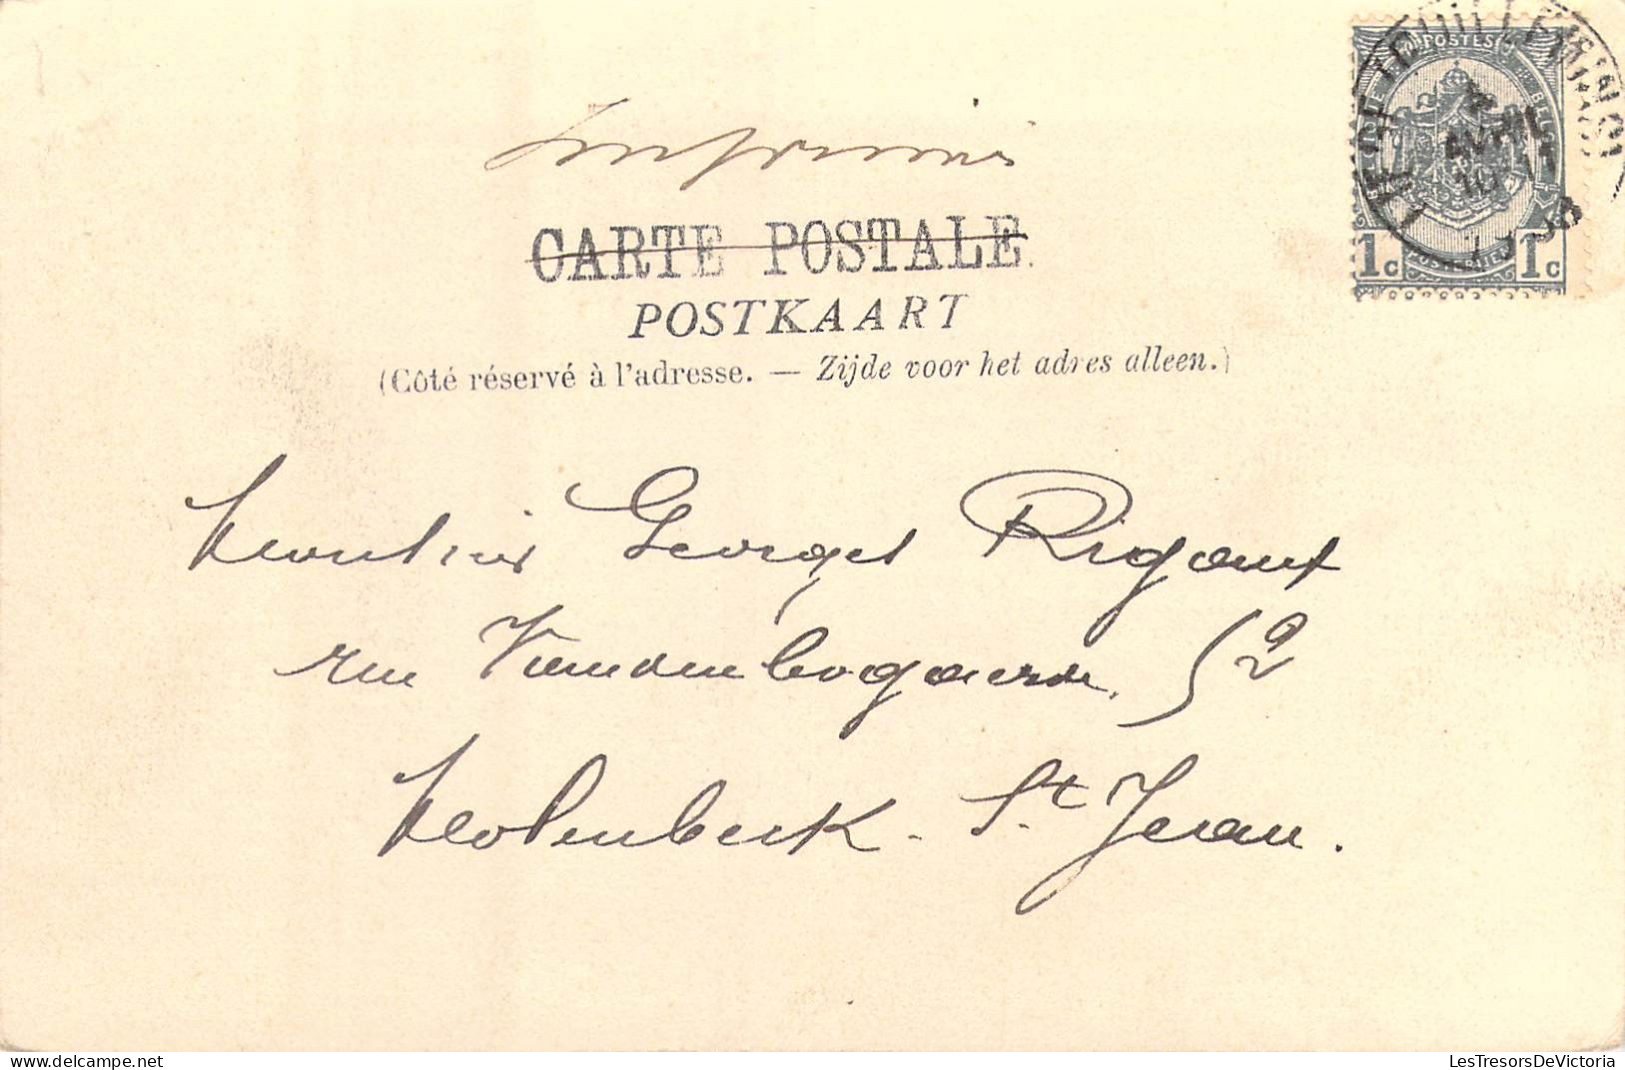 Imprimés
CARTE POSTALE
POSTKAART
(Côté réservé à l'adresse. — Zijde voor het adres alleen.)
Monsieur Georges Rigaux
rue Vandenbogaerde, 52
Molenbeek - St Jean.
POSTES
1c 1c
AVRIL
LesTresorsDeVictoria
delcampe.net